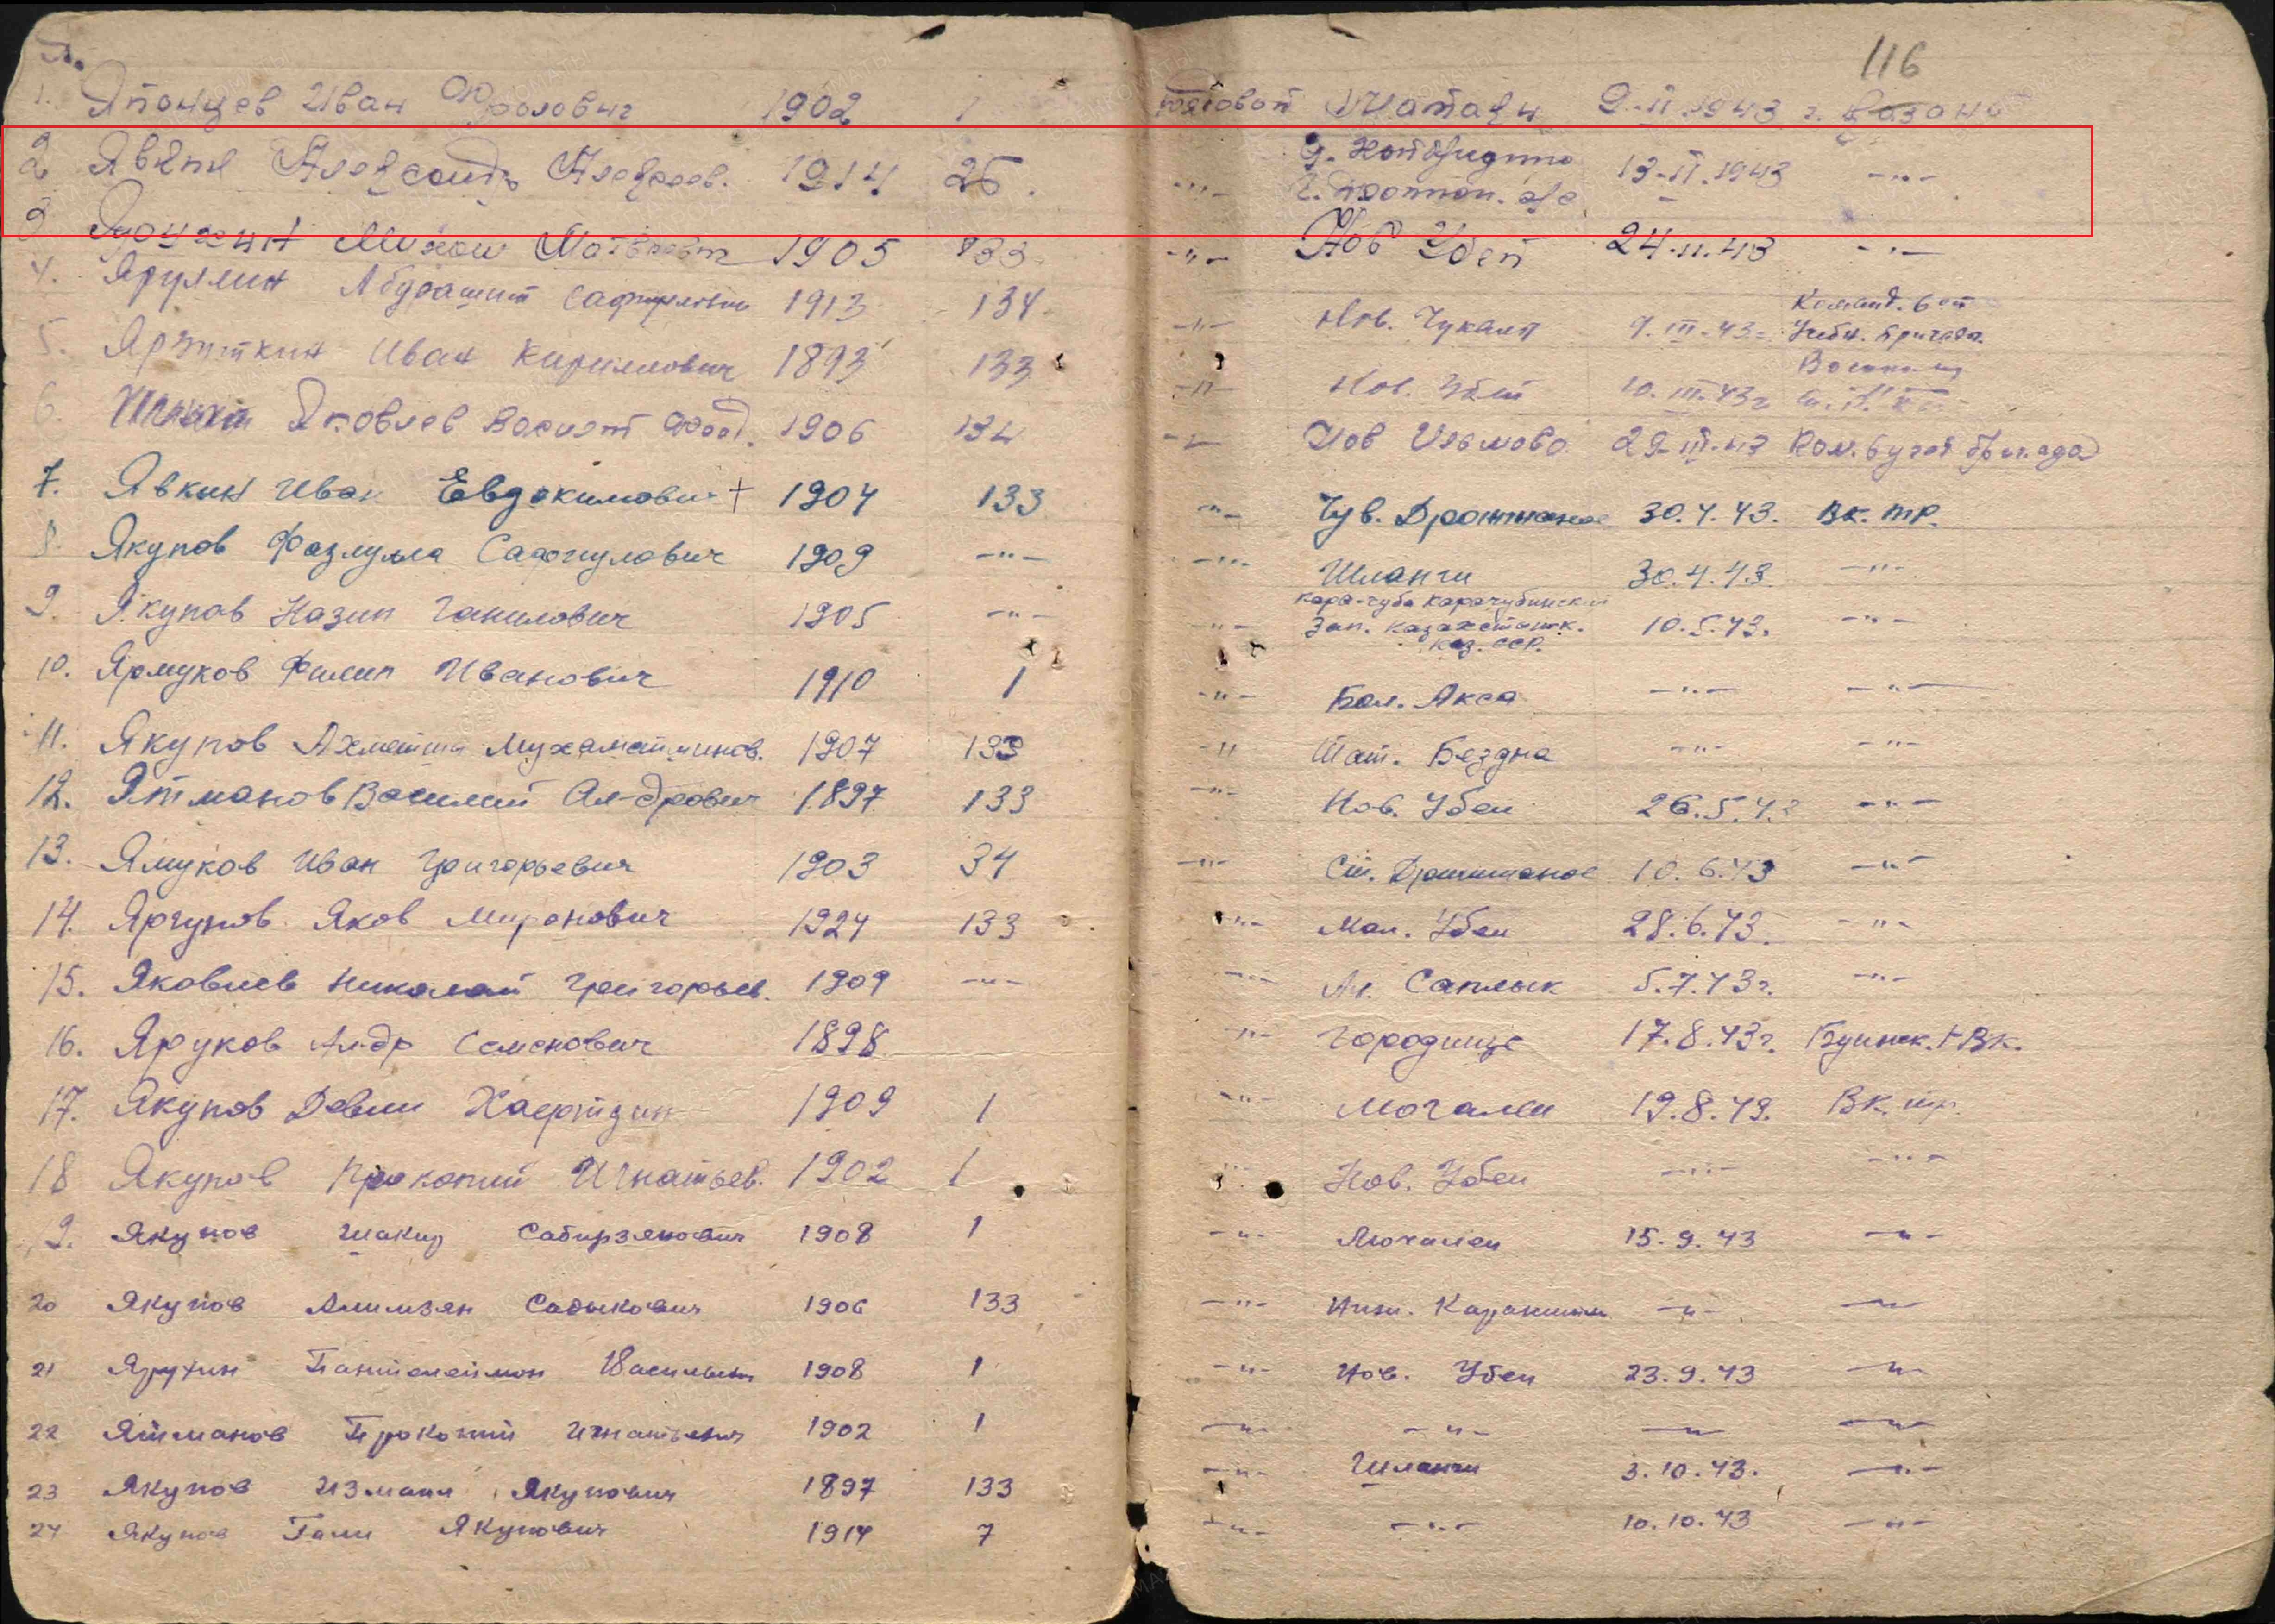 116
1. Японцев Иван Фролович 1902 1 рядовой Шатази 9-II.1943 г. Казань
2 Александр Алексеев. 1914 26. -"- 13-II.1943 -"-
3 Михаил 1905 133 -"- Нов Убей 24.II.43 -"-
4. Ярулмин Абдрашит 1913 134 -"- Нов. Чукалы 9.III.43г.
Учебн. бригада.
5. Ярзуткин Иван Кириллович 1893 133 -"- Нов. Убей 10.III.43г
6. Яковлев Василий Фёд. 1906 134 -"- Нов Ильмово 29-III-43 бригада
7. Явкин Иван Евдокимович + 1904 133 -"- Чув. Дрожжаное 30.4.43. Вк. тр.
8. Якупов Фазлулла Сафиулович 1909 -"- -"- Шланги 30.4.43 -"-
9. Якупов Назип Ганилович 1905 -"- -"- Кара-чуба Карачубинский
Зап. Казахстанск. 10.5.43. -"-
Каз. ССР.
10. Ярмуков Филип Иванович 1910 1 -"- Бол. Акса -"- -"-
11. Якупов Мухаматшинов. 1907 133 -"- Тат. Бездна -"- -"-
12. Ятманов Василий Ал-дрович 1897 133 -"- Нов. Убеи 26.5.43 -"-
13. Ямуков Иван Григорьевич 1903 34 -"- Ст. Дрожжаное 10.6.43 -"-
14. Яргунов Яков Миронович 1924 133 -"- Мал. Убеи 28.6.43. -"-
15. Яковлев Николай Григорьев. 1909 -"- -"- Саплык 5.7.43г. -"-
16. Яруков Ал-др Семенович 1898 -"- Городище 17.8.43г. Буинск. РВК.
17. Якупов Девли Хафизин 1909 1 -"- Мочалеи 19.8.43. Вк. тр.
18 Якупов Прокопий Игнатьев. 1902 1 -"- Нов. Убеи -"- -"-
19. Якупов Шакир Сабирзянович 1908 1 -"- Мочалеи 15.9.43 -"-
20 Якупов Алимзян Садыкович 1906 133 -"- Ниж. -"- -"-
21 Ярухин Пантелеймон Васильевич 1908 1 -"- Нов. Убеи 23.9.43 -"-
22 Ятманов Прокопий Игнатьевич 1902 1 -"- -"- -"- -"-
23 Якупов Измаил Якупович 1897 133 -"- Шланги 3.10.43. -"-
24 Якупов Гали Якупович 1914 7 -"- -"- 10.10.43 -"-